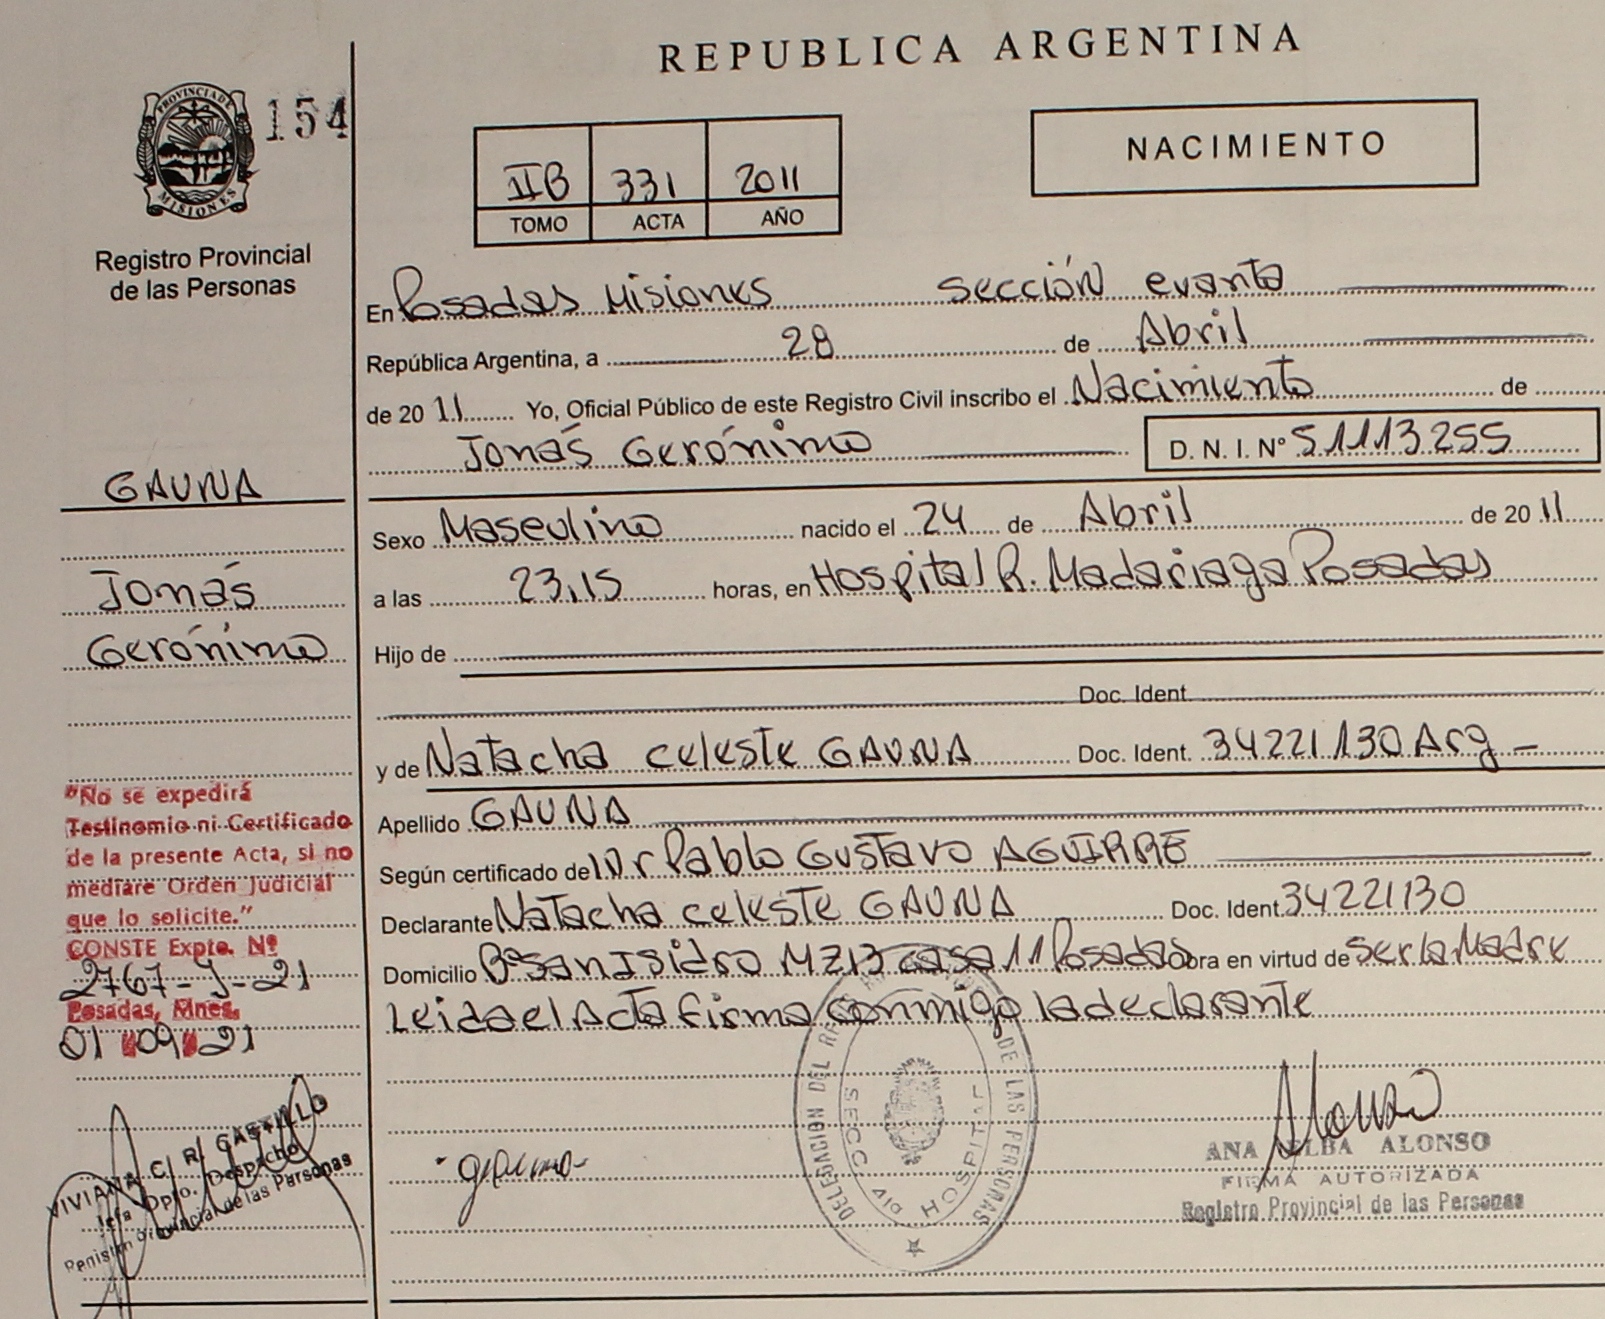 REPUBLICA ARGENTINA
PROVINCIA DE
MISIONES
154
Registro Provincial
de las Personas
IIB 331 2011
TOMO ACTA AÑO
NACIMIENTO
En Posadas Misiones sección cuarta
República Argentina, a 28 de Abril
de 20 11 Yo, Oficial Público de este Registro Civil inscribo el Nacimiento de
Jonás Gerónimo D. N. I. Nº 51113.255
Sexo Masculino nacido el 24 de Abril de 20 11
a las 23,15 horas, en Hospital R. Madariaga Posadas
Hijo de
Doc. Ident.
y de Natacha Celeste GAUNA Doc. Ident. 34221130 Arg -
Apellido GAUNA
Según certificado de Dr Pablo Gustavo AGUIRRE
Declarante Natacha Celeste GAUNA Doc. Ident. 34221130
Domicilio Bº San Isidro MZ 13 casa 11 Posadas Obra en virtud de ser la Madre
Leida el Acta firma conmigo la declarante
GAUNA
Jonás
Gerónimo
"No se expedirá
Testinomio ni Certificado
de la presente Acta, si no
mediare Orden Judicial
que lo solicite."
CONSTE Expte. Nº
2767-J-21
Posadas, Mnes.
01 09 21
VIVIANA C. R. CASTILLO
Jefa Dpto. Despacho
Provincial de las Personas
DELEGACION DEL DE LAS PERSONAS
SECC. HOSPITAL
ANA ELBA ALONSO
FIRMA AUTORIZADA
Registro Provincial de las Personas